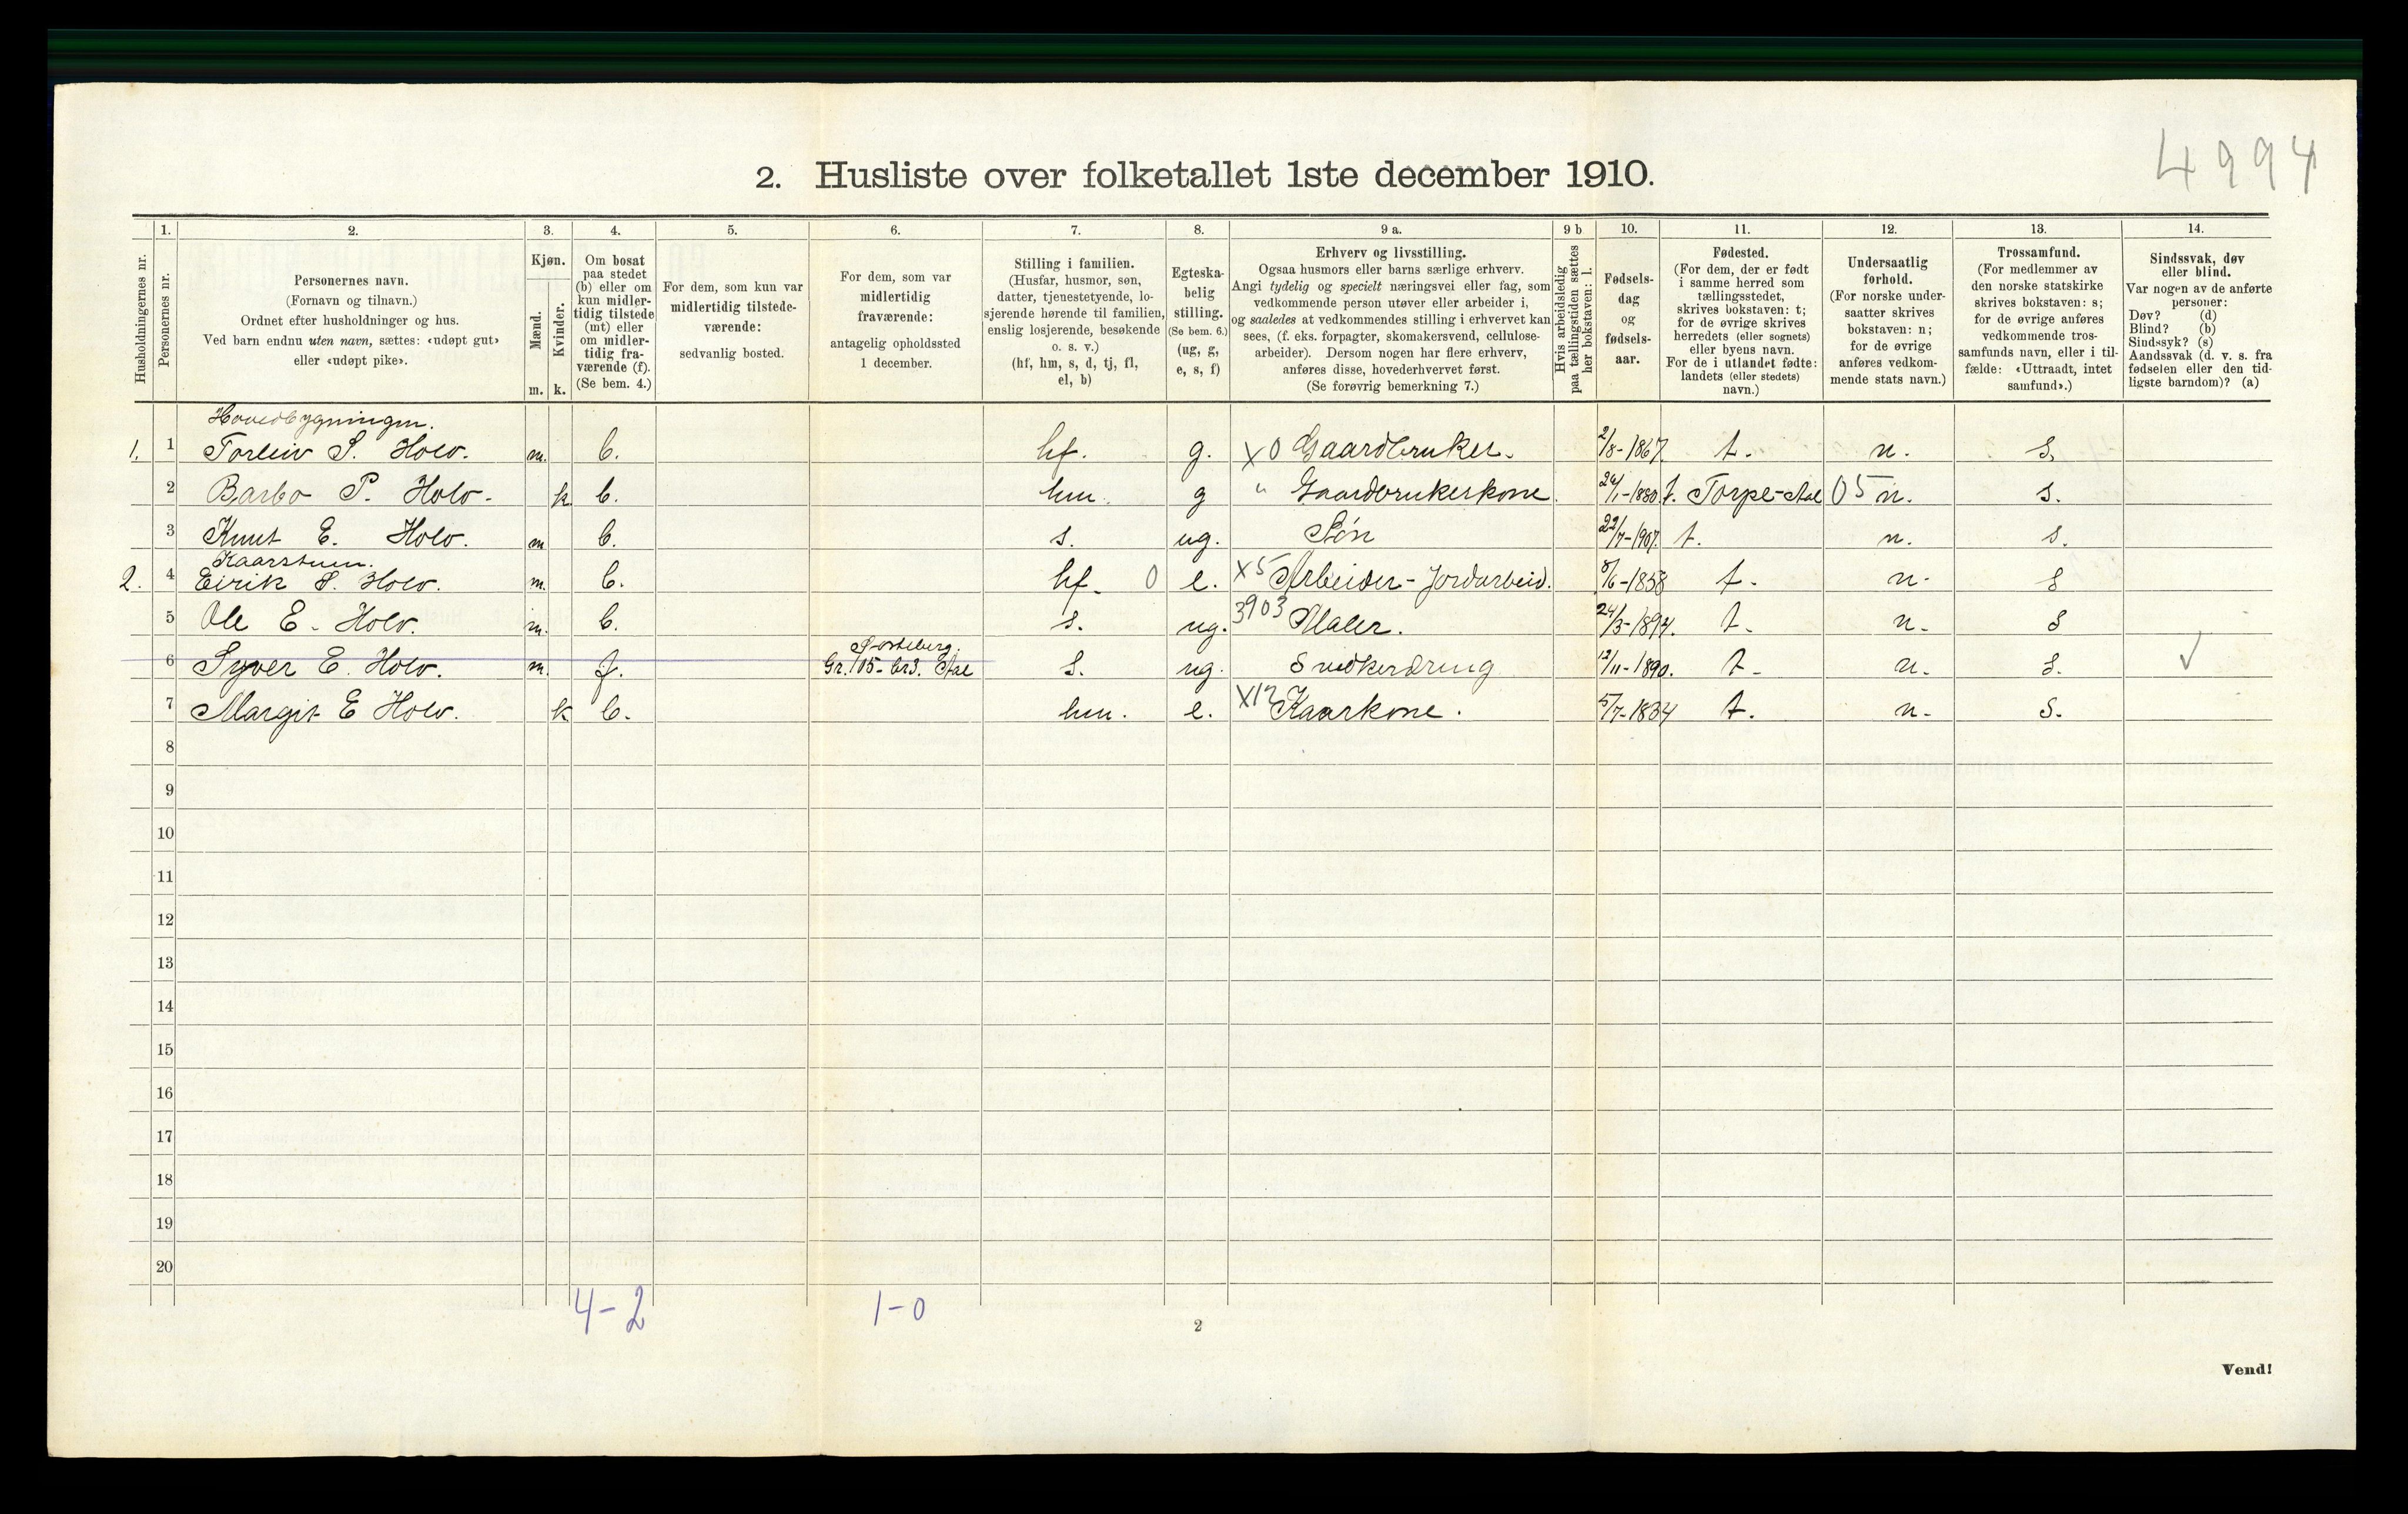 4994
2. Husliste over folketallet 1ste december 1910.
Husholdningernes nr.
1.
Personernes nr.
2.
Personernes navn.
(Fornavn og tilnavn.)
Ordnet efter husholdninger og hus.
Ved barn endnu uten navn, sættes: «udøpt gut»
eller «udøpt pike».
3.
Kjøn.
Mænd.
Kvinder.
m. k.
4.
Om bosat
paa stedet
(b) eller om
kun midler-
tidig tilstede
(mt) eller
om midler-
tidig fra-
værende (f).
(Se bem. 4.)
5.
For dem, som kun var
midlertidig tilstede-
værende:
sedvanlig bosted.
6.
For dem, som var
midlertidig
fraværende:
antagelig opholdssted
1 december.
7.
Stilling i familien.
(Husfar, husmor, søn,
datter, tjenestetyende, lo-
sjerende hørende til familien,
enslig losjerende, besøkende
o. s. v.)
(hf, hm, s, d, tj, fl,
el, b)
8.
Egteska-
belig
stilling.
(Se bem. 6.)
(ug, g,
e, s, f)
9 a.
Erhverv og livsstilling.
Ogsaa husmors eller barns særlige erhverv.
Angi tydelig og specielt næringsvei eller fag, som
vedkommende person utøver eller arbeider i,
og saaledes at vedkommendes stilling i erhvervet kan
sees, (f. eks. forpagter, skomakersvend, cellulose-
arbeider). Dersom nogen har flere erhverv,
anføres disse, hovederhvervet først.
(Se forøvrig bemerkning 7.)
9 b
Hvis arbeidsledig
paa tællingstiden sættes
her bokstaven: l.
10.
Fødsels-
dag
og
fødsels-
aar.
11.
Fødested.
(For dem, der er født
i samme herred som
tællingsstedet,
skrives bokstaven: t;
for de øvrige skrives
herredets (eller sognets)
eller byens navn.
For de i utlandet fødte:
landets (eller stedets)
navn.)
12.
Undersaatlig
forhold.
(For norske under-
saatter skrives
bokstaven: n;
for de øvrige
anføres vedkom-
mende stats navn.)
13.
Trossamfund.
(For medlemmer av
den norske statskirke
skrives bokstaven: s;
for de øvrige anføres
vedkommende tros-
samfunds navn, eller i til-
fælde: «Uttraadt, intet
samfund».)
14.
Sindssvak, døv
eller blind.
Var nogen av de anførte
personer:
Døv? (d)
Blind? (b)
Sindssyk? (s)
Aandssvak (d. v. s. fra
fødselen eller den tid-
ligste barndom)? (a)
Hovedbygningen.
1. 1 Torleiv S. Holv. m. b. hf. g. X0 Gaardbruker. 2/8-1867. t. n. s.
2 Barbo P. Holv. k b. hm. g " Gaardbrukerskone. 24/1-1880. t. Torpe-Aal 05 n. s.
3 Knut E. Holv. m b. s. ug. Søn 22/7-1907. t. n. s.
Kaarstuen.
2. 4 Eirik S. Holv. m. b. hf. 0 e. X5 Arbeider-Jordarbeid. 8/6-1858 t. n. s
5 Ole E. Holv. m. b. s. ug. 3903 Maler. 24/3-1894. t. n. s
6 Syver E. Holv. m. f. Gr. 105-br3. Aal s. ug. Snedkerdreng 12/11-1890. t. n. s. √
7 Margit E Holv. k b. hm. e. X12 Kaarkone. 5/7-1834 t. n. s.
8
9
10
11
12
13
14
15
16
17
18
19
20
4-2 1-0
2
Vend!